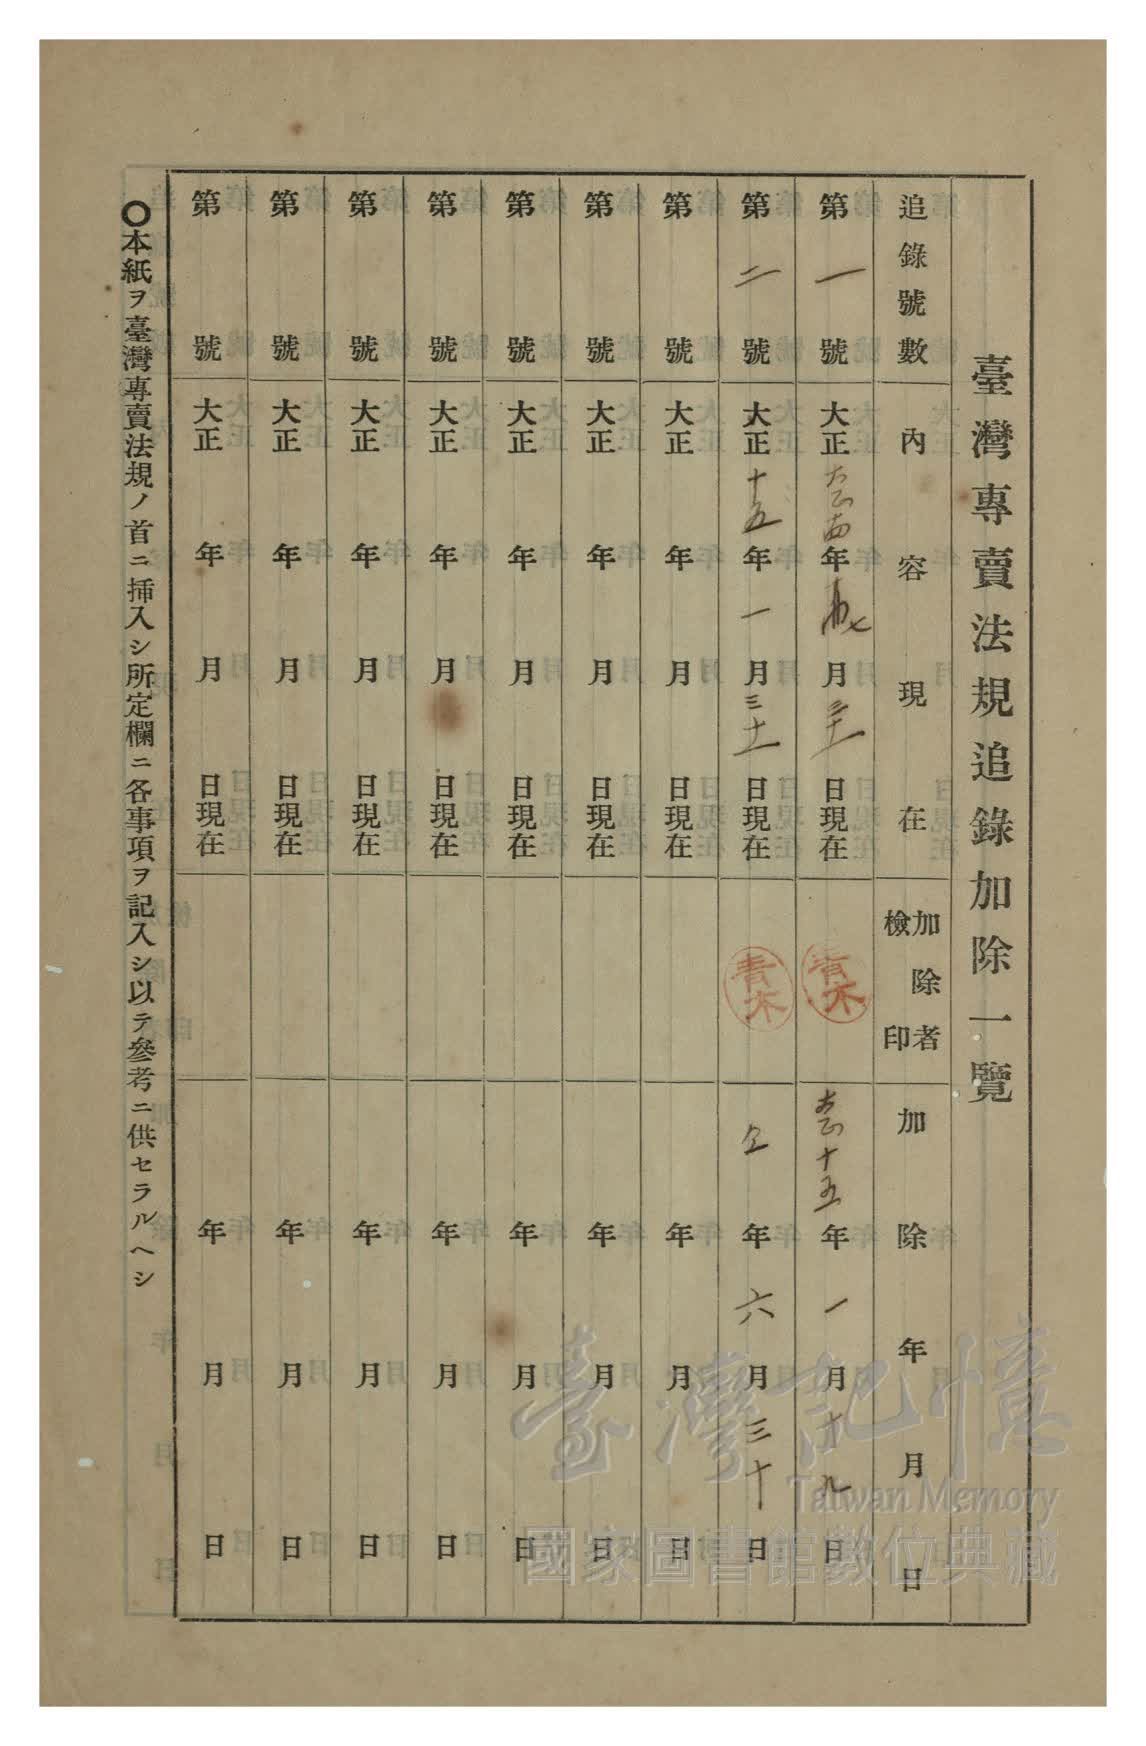 臺灣專賣法規追錄加除一覽
追錄號數 內容現在 加除者檢印 加除年月日
第一號 大正年月三十一日現在 青木 大正十五年一月十九日
第二號 大正十五年一月三十一日現在 青木 仝年六月三十日
第 號 大正 年 月 日現在 年 月 日
第 號 大正 年 月 日現在 年 月 日
第 號 大正 年 月 日現在 年 月 日
第 號 大正 年 月 日現在 年 月 日
第 號 大正 年 月 日現在 年 月 日
第 號 大正 年 月 日現在 年 月 日
第 號 大正 年 月 日現在 年 月 日
〇本紙ヲ臺灣專賣法規ノ首ニ挿入シ所定欄ニ各事項ヲ記入シ以テ參考ニ供セラルヘシ
臺灣記憶
Taiwan Memory
國家圖書館數位典藏